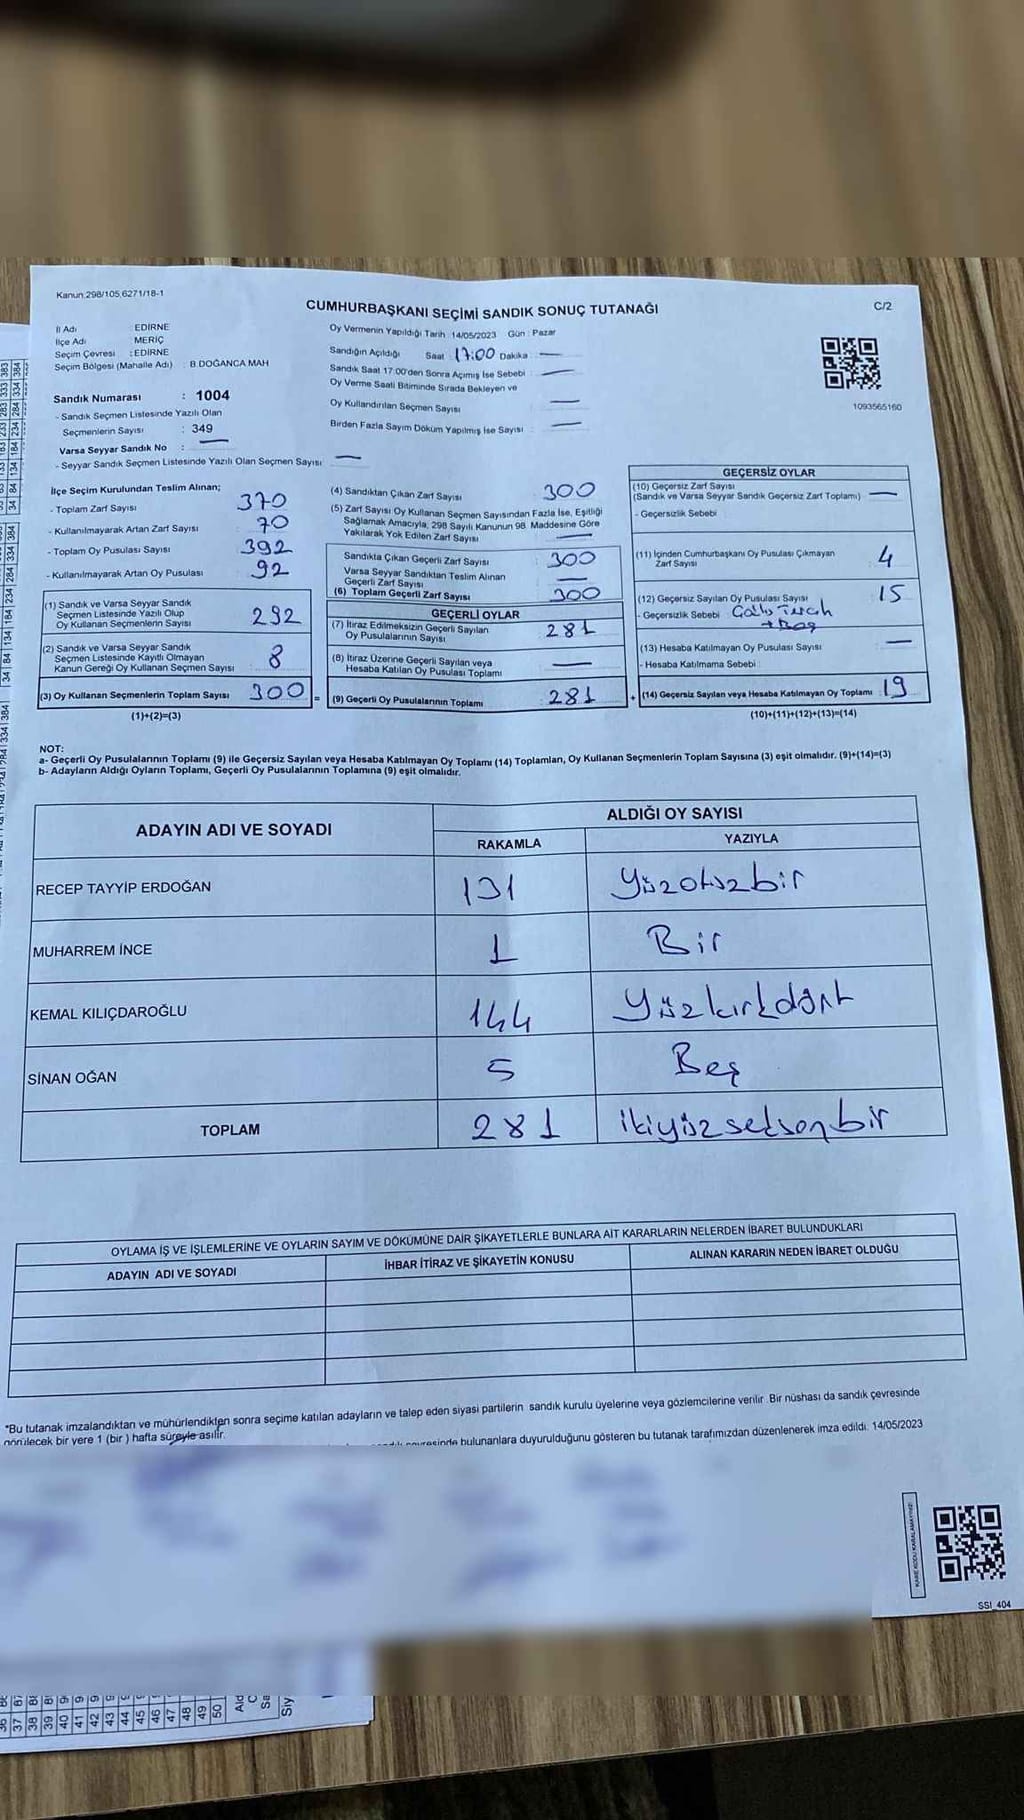 Kanun:298/105,6271/18-1
CUMHURBAŞKANI SEÇİMİ SANDIK SONUÇ TUTANAĞI
C/2
İl Adı EDİRNE
İlçe Adı MERİÇ
Seçim Çevresi : EDİRNE
Seçim Bölgesi (Mahalle Adı) : B.DOĞANCA MAH
Sandık Numarası : 1004
- Sandık Seçmen Listesinde Yazılı Olan
Seçmenlerin Sayısı : 349
Varsa Seyyar Sandık No : —
- Seyyar Sandık Seçmen Listesinde Yazılı Olan Seçmen Sayısı —
Oy Vermenin Yapıldığı Tarih 14/05/2023 Gün : Pazar
Sandığın Açıldığı Saat 17:00 Dakika —
Sandık Saat 17.00'den Sonra Açımış İse Sebebi : —
Oy Verme Saati Bitiminde Sırada Bekleyen ve
Oy Kullandırılan Seçmen Sayısı —
Birden Fazla Sayım Döküm Yapılmış İse Sayısı : —
1093565160
İlçe Seçim Kurulundan Teslim Alınan;
- Toplam Zarf Sayısı 370
- Kullanılmayarak Artan Zarf Sayısı 70
- Toplam Oy Pusulası Sayısı 392
- Kullanılmayarak Artan Oy Pusulası 92
(1) Sandık ve Varsa Seyyar Sandık
Seçmen Listesinde Yazılı Olup
Oy Kullanan Seçmenlerin Sayısı 292
(2) Sandık ve Varsa Seyyar Sandık
Seçmen Listesinde Kayıtlı Olmayan
Kanun Gereği Oy Kullanan Seçmen Sayısı 8
(3) Oy Kullanan Seçmenlerin Toplam Sayısı 300 =
(1)+(2)=(3)
(4) Sandıktan Çıkan Zarf Sayısı 300
(5) Zarf Sayısı Oy Kullanan Seçmen Sayısından Fazla İse, Eşitliği
Sağlamak Amacıyla, 298 Sayılı Kanunun 98. Maddesine Göre
Yakılarak Yok Edilen Zarf Sayısı —
Sandıkta Çıkan Geçerli Zarf Sayısı 300
Varsa Seyyar Sandıktan Teslim Alınan
Geçerli Zarf Sayısı —
(6) Toplam Geçerli Zarf Sayısı 300
GEÇERLİ OYLAR
(7) İtiraz Edilmeksizin Geçerli Sayılan
Oy Pusulalarının Sayısı 281
(8) İtiraz Üzerine Geçerli Sayılan veya
Hesaba Katılan Oy Pusulası Toplamı —
(9) Geçerli Oy Pusulalarının Toplamı 281 +
GEÇERSİZ OYLAR
(10) Geçersiz Zarf Sayısı
(Sandık ve Varsa Seyyar Sandık Geçersiz Zarf Toplamı) —
- Geçersizlik Sebebi
(11) İçinden Cumhurbaşkanı Oy Pusulası Çıkmayan
Zarf Sayısı 4
(12) Geçersiz Sayılan Oy Pusulası Sayısı 15
- Geçersizlik Sebebi
+ Boş
(13) Hesaba Katılmayan Oy Pusulası Sayısı —
- Hesaba Katılmama Sebebi
(14) Geçersiz Sayılan veya Hesaba Katılmayan Oy Toplamı : 19
(10)+(11)+(12)+(13)=(14)
NOT:
a- Geçerli Oy Pusulalarının Toplamı (9) ile Geçersiz Sayılan veya Hesaba Katılmayan Oy Toplamı (14) Toplamları, Oy Kullanan Seçmenlerin Toplam Sayısına (3) eşit olmalıdır. (9)+(14)=(3)
b- Adayların Aldığı Oyların Toplamı, Geçerli Oy Pusulalarının Toplamına (9) eşit olmalıdır.
ADAYIN ADI VE SOYADI
ALDIĞI OY SAYISI
RAKAMLA YAZIYLA
RECEP TAYYİP ERDOĞAN 131 Yüzotuzbir
MUHARREM İNCE 1 Bir
KEMAL KILIÇDAROĞLU 144 Yüzkırkdört
SİNAN OĞAN 5 Beş
TOPLAM 281 ikiyüzseksenbir
OYLAMA İŞ VE İŞLEMLERİNE VE OYLARIN SAYIM VE DÖKÜMÜNE DAİR ŞİKAYETLERLE BUNLARA AİT KARARLARIN NELERDEN İBARET BULUNDUKLARI
ADAYIN ADI VE SOYADI İHBAR İTİRAZ VE ŞİKAYETİN KONUSU ALINAN KARARIN NEDEN İBARET OLDUĞU
*Bu tutanak imzalandıktan ve mühürlendikten sonra seçime katılan adayların ve talep eden siyasi partilerin sandık kurulu üyelerine veya gözlemcilerine verilir. Bir nüshası da sandık çevresinde
görülecek bir yere 1 (bir) hafta süreyle asılır.
bulunanlara duyurulduğunu gösteren bu tutanak tarafımızdan düzenlenerek imza edildi. 14/05/2023
KARE KODU KARALAMAYINIZ!
SSI_404